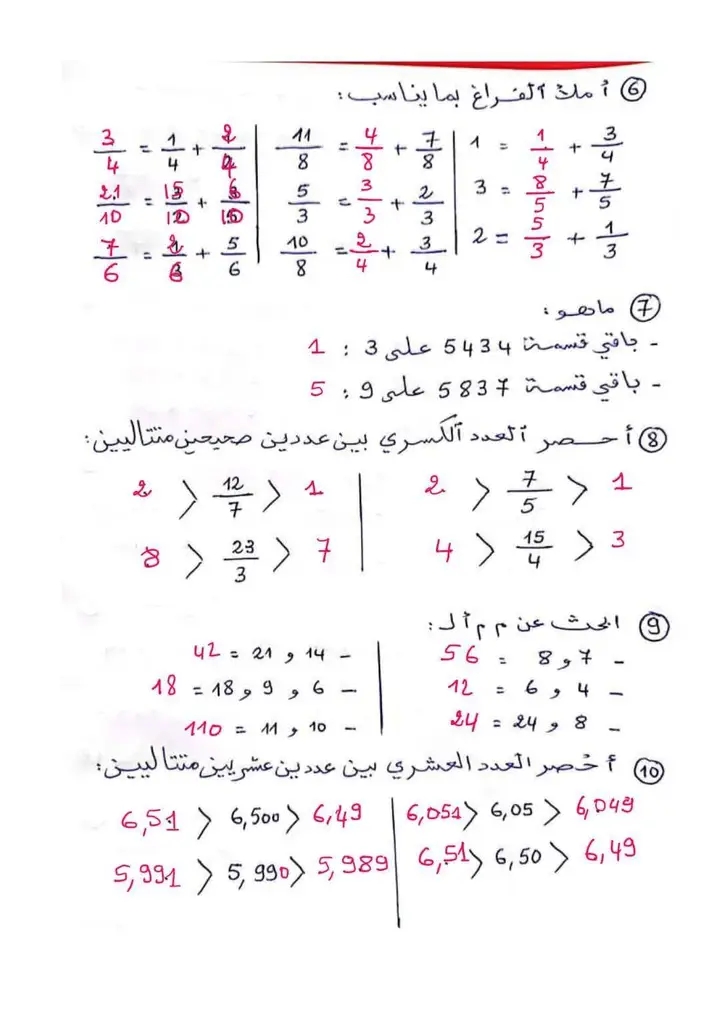 ⑥ أملأ الفراغ بما يناسب:
3/4 + 1/4 = 1 | 7/8 + 4/8 = 11/8 | 2/4 + 1/4 = 3/4
7/5 + 8/5 = 3 | 2/3 + 3/3 = 5/3 | 6/10 + 15/10 = 21/10
1/3 + 5/3 = 2 | 3/4 + 2/4 = 10/8 | 5/6 + 2/6 = 7/6
⑦ ماهو:
- باقي قسمة 5434 على 3 : 1
- باقي قسمة 5837 على 9 : 5
⑧ أحصر العدد الكسري بين عددين صحيحين متتاليين:
2 > 12/7 > 1 | 2 > 7/5 < 1
8 > 23/3 > 7 | 4 > 15/4 > 3
⑨ ابحث عن م م أ لـ:
- 7 و 8 = 56 | - 14 و 21 = 42
- 4 و 6 = 12 | - 6 و 9 و 18 = 18
- 8 و 24 = 24 | - 10 و 11 = 110
⑩ أحصر العدد العشري بين عددين عشريين متتاليين:
6,51 > 6,500 > 6,49 | 6,051 > 6,05 > 6,049
5,991 > 5,990 > 5,989 | 6,51 > 6,50 > 6,49